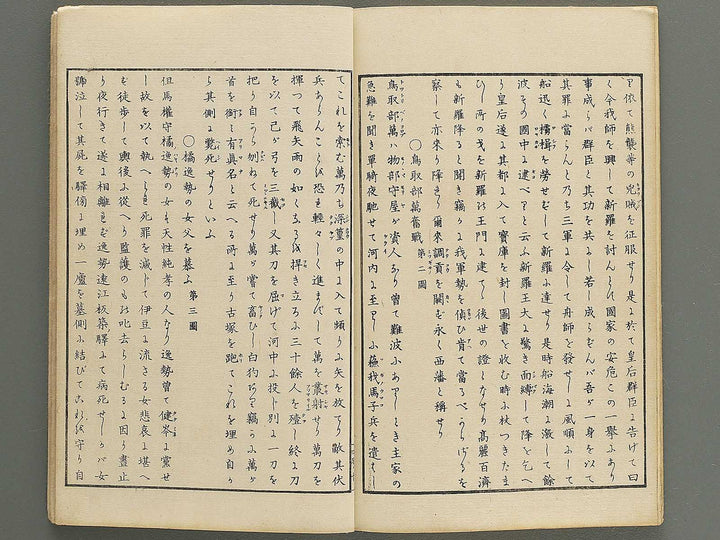 く令我師を興して新羅を討んとす國家の安危この一擧にあり
事成らバ群臣と其功を共にし若し成らずんバ吾が一身を以て
其罪に當らんと乃ち三軍に令して舟師を發せしに風順にして
船迅く檣楫を勞せずして新羅に達せり是時船海潮に激して餘
波その國中に逮べりと云ふ新羅王大に驚き面縛して降を乞へ
り皇后遂に其都に入て寶庫を封し圖書を收む時に杖つきたま
ひし所の戈を新羅の王門に建て後世の證となせり高麗百濟
も新羅降ると聞き竊に我軍勢を偵ひ肯て當るべからざるを
察して亦來り降れり爾來調貢を闕ず永く西藩と稱せり
〇鳥取部萬奮戰 第二圖
鳥取部萬ハ物部守屋が資人なり曾て難波にありしとき主家の
急難を聞き單騎夜馳せて河内に至りしに蘇我馬子兵を遣はし
てこれを索む萬乃ち深篁の中に入て頻りに矢を放てり敵其伏
兵あらんことを恐れ輕々しく進まずして萬を叢射せり萬刀を
揮つて飛矢雨の如くなるを捍き立ろに三十餘人を殪し終に刀
を以て己が弓を三截し又其刀を屈げて河中に投し別に一刀を
把り自ら刎ねて死せり萬が嘗て畜ひし白狗あり竊に萬が
首を銜て有眞名と云へる所に至り古塚を跑てこれを埋め自か
ら其側に斃死せりといふ
〇橘逸勢の女父を慕ふ 第三圖
但馬權守橘逸勢の女も天性純孝の人なり逸勢曾て健岑に黨せ
し故を以て執へられ死罪を減じて伊豆に流さる女悲哀に堪へ
ず徒歩して輿後に從へり監護のもの叱去らしむるに因り晝止
り夜行きて遂に相離れず逸勢遠江板築驛にて病死せしかバ女
號泣して其屍を驛傍に埋め一廬を墓側に結びてこれを守り自